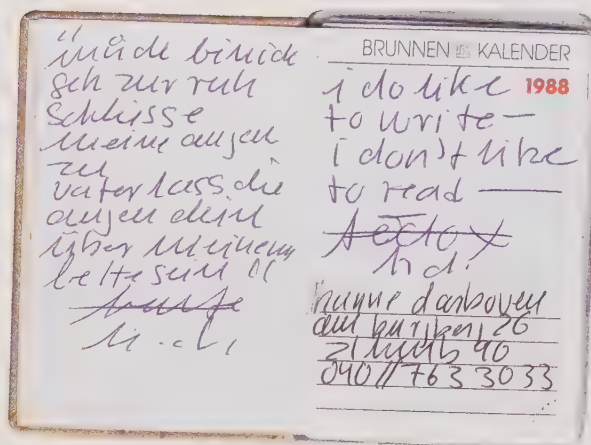 "müde bin ich
geh zur ruh
schliesse
meine augen
zu
vater lass die
augen dein
über meinem
bette sein"
h.d.
BRUNNEN KALENDER
1988
i do like
to write —
i don't like
to read —
h d.
hanne darboven
am burgberg 26
21 hmb 90
040 // 763 30 33